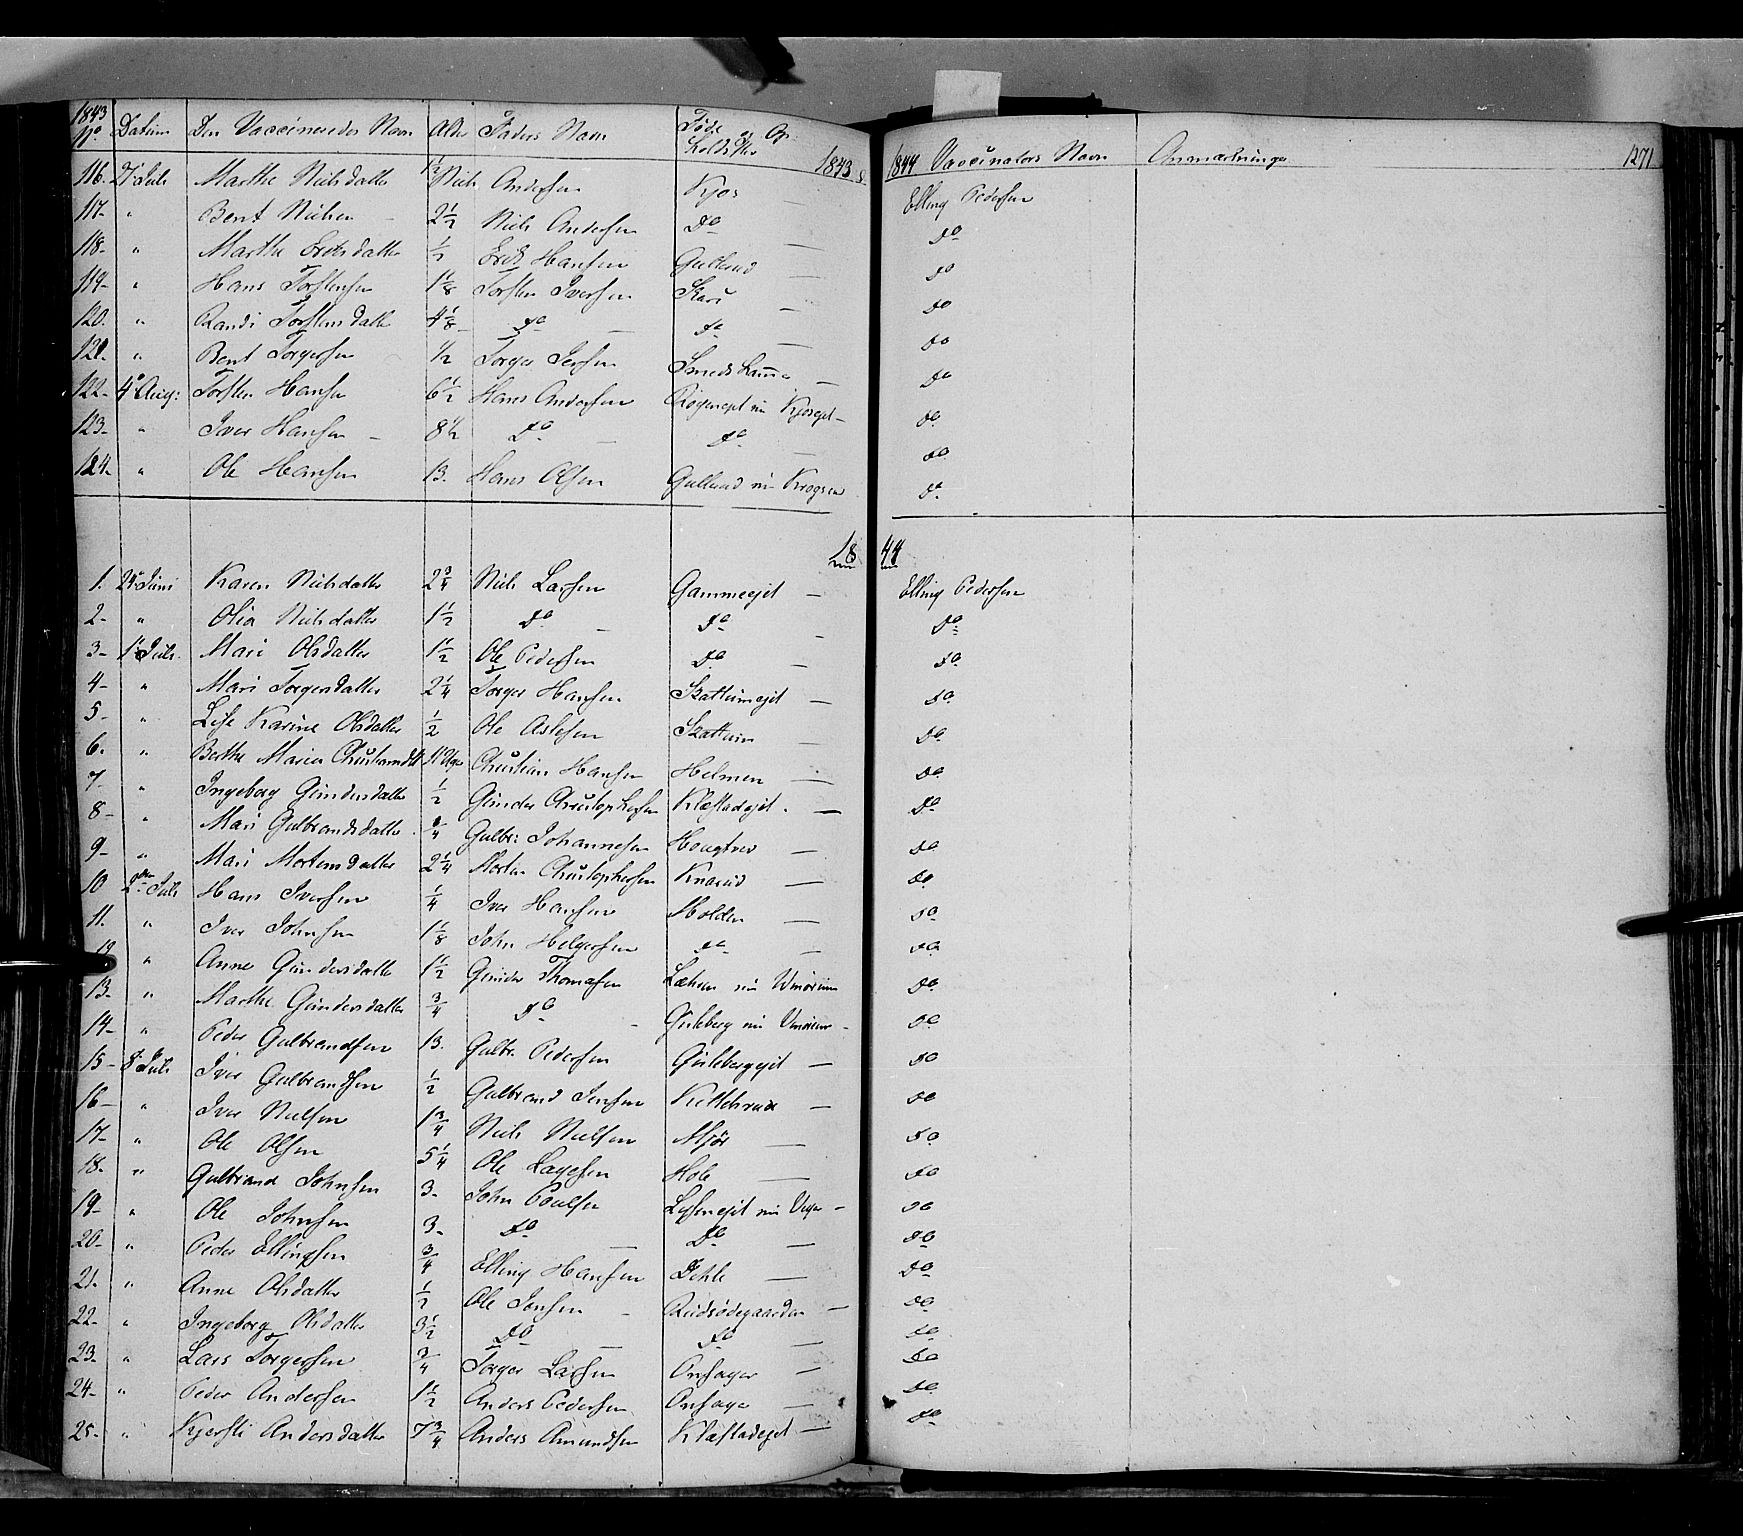 1843
No Datum Den Vaccineredes Navn Alder Faders Navn Føde og Op-
holds Sted 1843 & 1844 Vaccinators Navn Anmærkninger 1271
116. 7de Juli Marthe Nielsdatter 1 1/2 Niels Andersen Kjos — Elling Pedersen
117- " Bent Nielsen - 2 1/2 Niels Andersen Do — Do
118- " Marthe Eriksdatter 1/2 Erik Hansen Gullerud — Do
119- " Hans Torstensen 1 1/8 Torsten Iversen Skari — Do
120. " Randi Torstensdatter 4 1/8 - Do — Do — Do
121. " Bent Torgersen 1/2 Torger Jensen Smedshamer — Do
122- 4de Aug: Torsten Hansen 6 1/2 Hans Andersen nu Kjosejet - Do
123- " Iver Hansen - 8 1/2 Do — Do — Do
124- " " Ole Hansen 13. Hans Olsen Gullerud nu Do
1844
1. Juni Karen Nielsdatter 2 3/4 Niels Larsen Gammeejet — Elling Pedersen
2- " Olia Nielsdatter 1 1/2 Do — Do — Do
3- 1ste Juli Mari Olsdatter 1 1/2 Ole Pedersen Do — Do
4- " Mari Torgersdatter 2 1/4 Torger Hansen Skattumejet — Do
5- " Lise Karine Olsdatter 1/2 Ole Aslesen Skattum — Do
6- " Berthe Maria Christiansdtr 11 Uger Christian Hansen Helmen — Do
7. " Ingeborg Gundersdatter 1/2 Gunder Christophersen Klæstadejet. — Do
8- " Mari Gulbrandsdatter 3/4 Gulbr: Johannesen Hougtvei — Do
9- " Mari Mortensdatter 2 1/4 Morten Christophersen Knarud — Do
10 2den Juli Hans Iversen 1/4 Iver Hansen Molden — Do
11. " Iver Johnsen 1 1/8 John Helgersen Do — Do
12 " Anne Gundersdatter 1 1/2 Gunder Thomasen nu Do
13- " Marthe Gundersdatter 3/4 Do - Gisleberg nu - Do
14- " Peder Gulbrandsen 13. Gulbr. Pedersen Gislebergejet — Do
15- 8de Juli Iver Gulbrandsen 1/2 Gulbrand Jensen Kittelsrud — Do
16- " Iver Nielsen 1 3/4 Niels Nielsen Mjør — Do
17- " Ole Olsen 5 1/4 Ole Hole — Do
18- " Gulbrand Johnsen 3- John Poulsen nu - Do
19- " Ole Johnsen 3- Do — Do — Do
20- " Peder Ellingsen 3/4 Elling Hansen Dehle — Do
21- " Anne Olsdatter 1/2 Ole Jensen - Rudsødegaarden — Do
22- " Ingeborg Olsdatter 3 1/2 Do — Do — Do
23- " Lars Torgersen 3/4 Torger Larsen Onsager — Do
24- " Peder Andersen 1 1/2 Anders Pedersen Onsager — Do
25- " Kjersti Andersdatter 7 3/4 Anders Amundsen Klæstadejet — Do